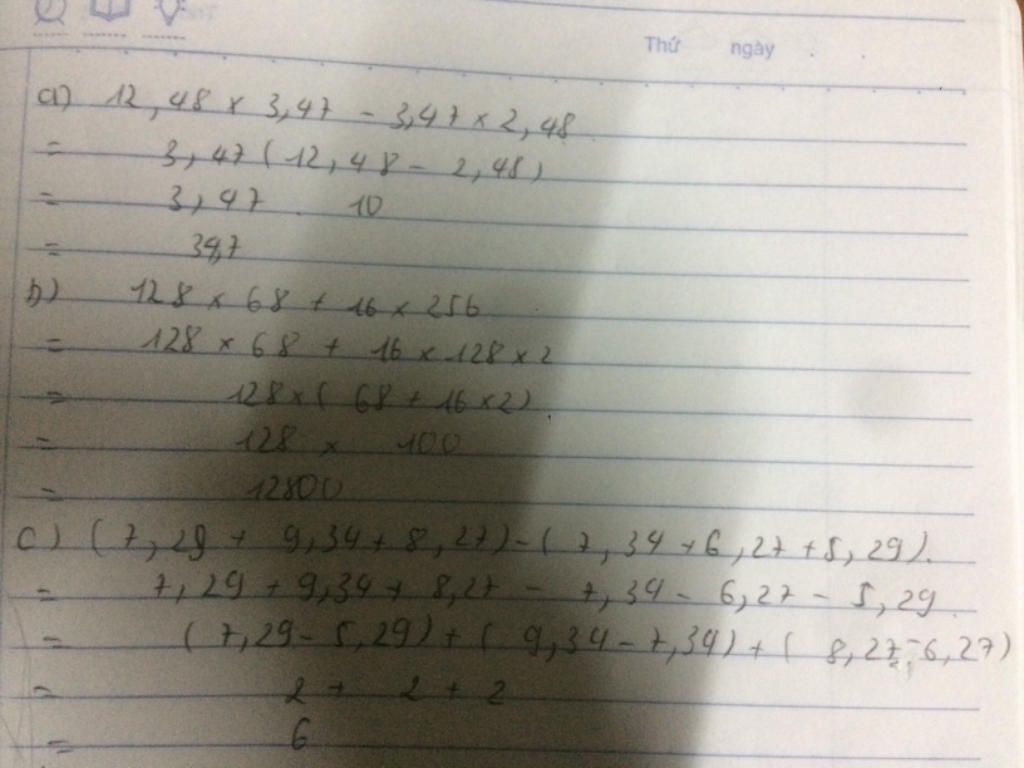 Thứ ngày
a) 12,48 × 3,47 - 3,47 × 2,48
= 3,47 (12,48 - 2,48)
= 3,47 . 10
= 34,7
b) 128 × 68 + 16 × 256
= 128 × 68 + 16 × 128 × 2
= 128 × ( 68 + 16 × 2)
= 128 × 100
= 12800
c) (7,29 + 9,34 + 8,27) - ( 7,34 + 6,27 + 5,29).
= 7,29 + 9,34 + 8,27 - 7,34 - 6,27 - 5,29
= ( 7,29 - 5,29) + ( 9,34 - 7,34) + ( 8,27 - 6,27)
= 2 + 2 + 2
= 6